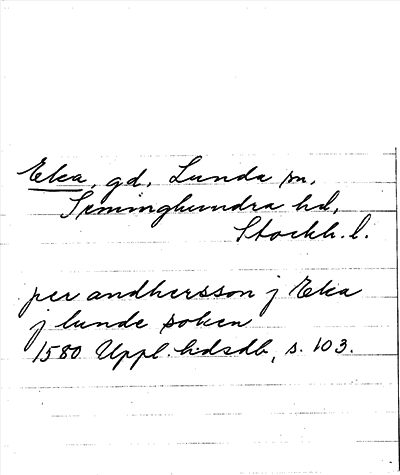 Eka, gd, Lunda sn,
Seminghundra hd,
Stockh. l.
per andhersson j Eka
j lunde soken
1580 Uppl. hdsdb, s. 103.